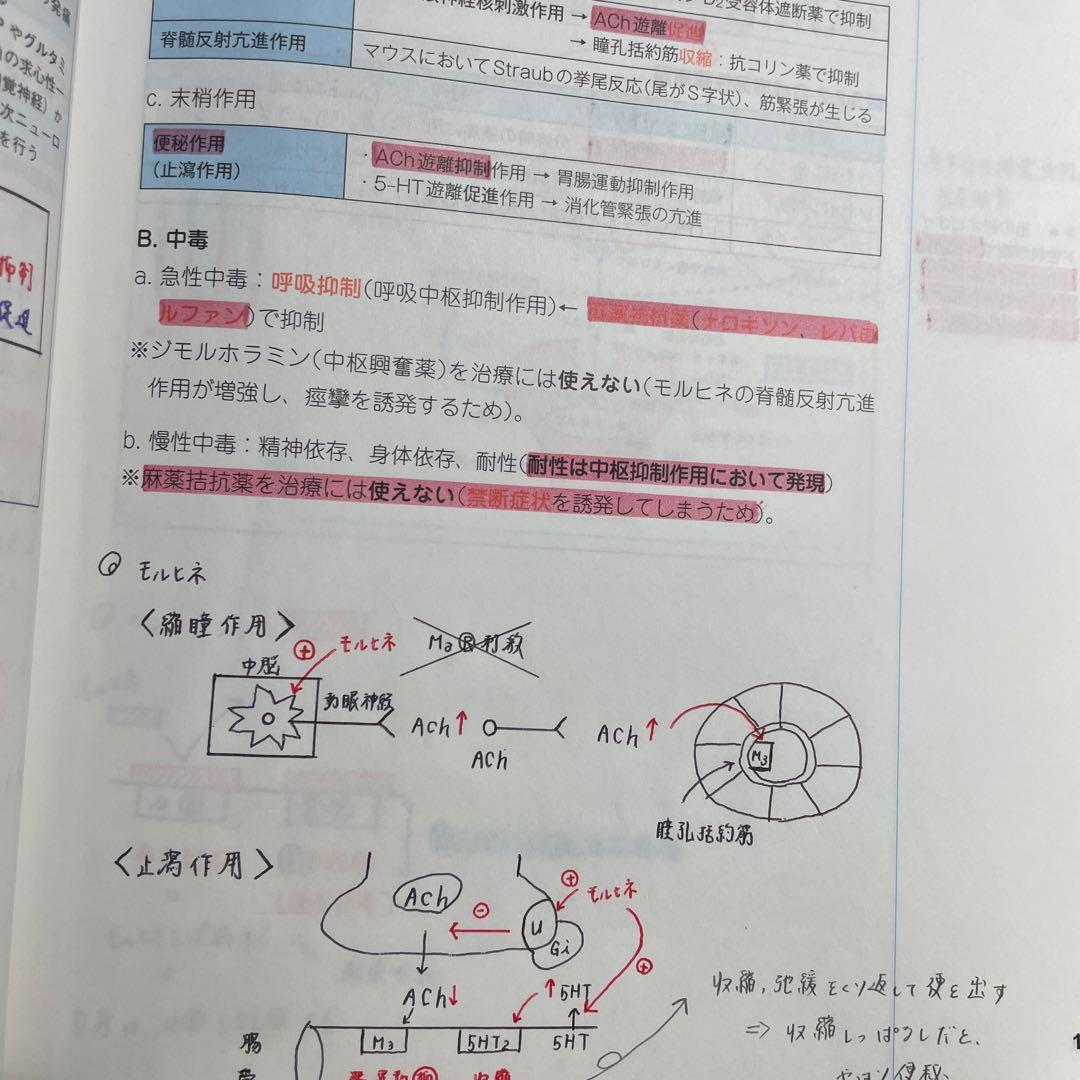 D₂受容体遮断薬で抑制
神経核刺激作用 → ACh遊離促進
→ 瞳孔括約筋収縮：抗コリン薬で抑制
脊髄反射亢進作用
マウスにおいてStraubの挙尾反応(尾がS字状)、筋緊張が生じる
c. 末梢作用
便秘作用
(止瀉作用)
・ACh遊離抑制作用 → 胃腸運動抑制作用
・5-HT遊離促進作用 → 消化管緊張の亢進
B. 中毒
a. 急性中毒：呼吸抑制(呼吸中枢抑制作用)← 麻薬拮抗薬(ナロキソン、レバロ
ルファン)で抑制
※ジモルホラミン(中枢興奮薬)を治療には使えない(モルヒネの脊髄反射亢進
作用が増強し、痙攣を誘発するため)。
b. 慢性中毒：精神依存、身体依存、耐性(耐性は中枢抑制作用において発現)
※麻薬拮抗薬を治療には使えない(禁断症状を誘発してしまうため)。
やグルタミ
の求心性一
覚神経) か
次ニューロ
を行う
抑制
促進
モルヒネ
〈縮瞳作用〉
⊕ モルヒネ
M₃ Ⓡ 刺激
中脳
動眼神経
ACh↑
ACh
ACh↑
M₃
瞳孔括約筋
〈止瀉作用〉
ACh
⊖
μ
Gi
⊕ モルヒネ
⊕
ACh↓
↑5HT
腸
M₃
5HT₂
5HT
収縮
収縮, 弛緩をくり返して便を出す
⇒ 収縮しっぱなしだと、
便秘、